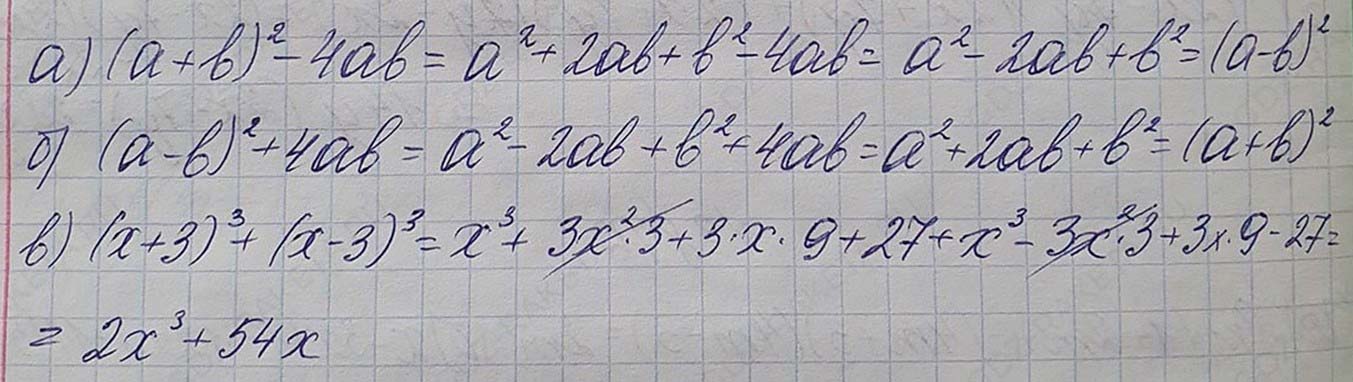 а) (a+b)² - 4ab = a² + 2ab + b² - 4ab = a² - 2ab + b² = (a-b)²
б) (a-b)² + 4ab = a² - 2ab + b² + 4ab = a² + 2ab + b² = (a+b)²
в) (x+3)³ + (x-3)³ = x³ + 3x²·3 + 3·x·9 + 27 + x³ - 3x²·3 + 3x·9 - 27 =
= 2x³ + 54x